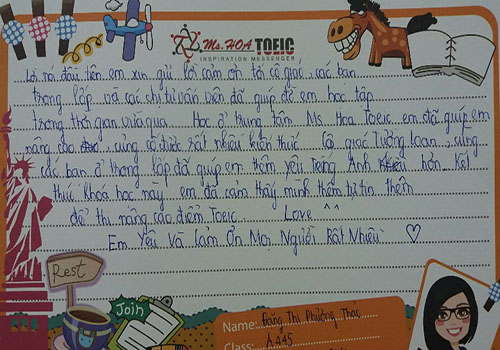 Ms. HOA TOEIC
INSPIRATION MESSENGER
Lời nói đầu tiên em xin gửi lời cảm ơn tới cô giáo, các bạn
trong lớp và các chị tư vấn viên đã giúp đỡ em học tập
trong thời gian vừa qua. Học ở trung tâm Ms Hoa Toeic em đã giúp em
nâng cao, củng cố được rất nhiều kiến thức. Cô giáo Tường Loan, cùng
các bạn ở trong lớp đã giúp em thêm yêu Tiếng Anh hơn. Kết
thúc khóa học này em đã cảm thấy mình thêm tự tin thêm
để thi nâng cao điểm Toeic. Love ^^
Em Yêu Và Cảm Ơn Mọi Người Rất Nhiều ♡
Rest
Join
Name: Đặng Thị Phương Thảo
Class: A445